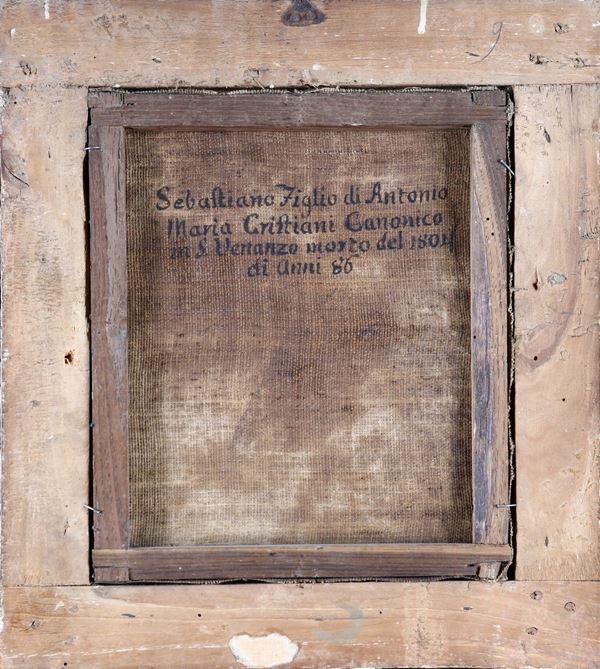 Sebastiano Figlio di Antonio
Maria Cristiani Canonico
in S. Venanzo morto del 1804
di Anni 86